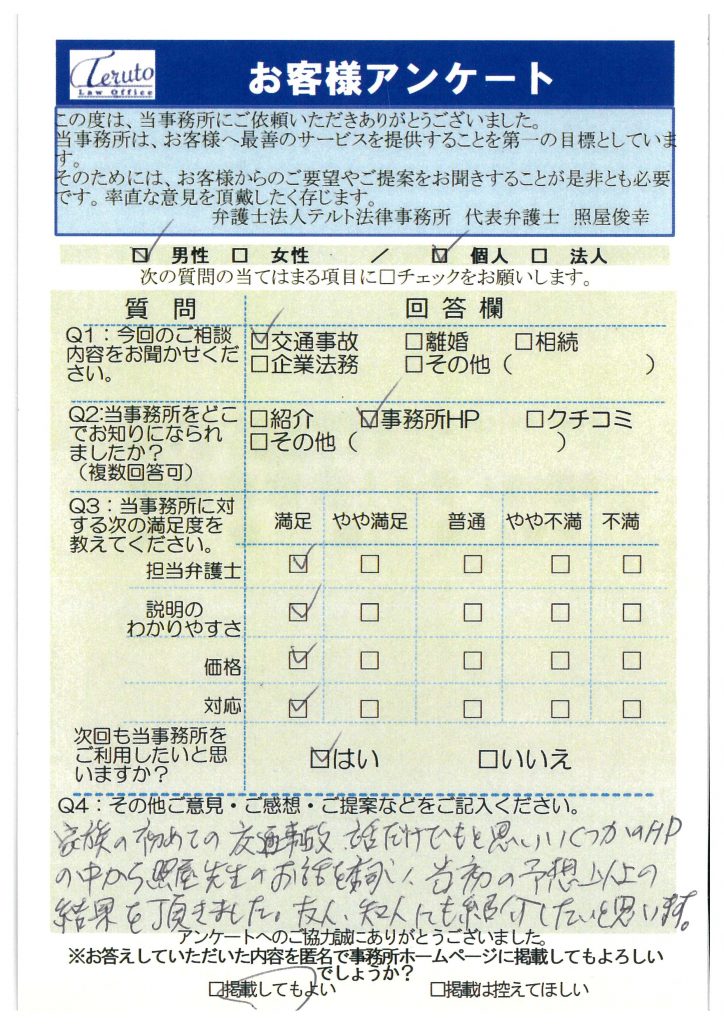 Teruto
Law Office
お客様アンケート
この度は、当事務所にご依頼いただきありがとうございました。
当事務所は、お客様へ最善のサービスを提供することを第一の目標としていま
す。
そのためには、お客様からのご要望やご提案をお聞きすることが是非とも必要
です。率直な意見を頂戴したく存じます。
弁護士法人テルト法律事務所 代表弁護士 照屋俊幸
☑ 男性 □ 女性 / ☑ 個人 □ 法人
次の質問の当てはまる項目に□チェックをお願いします。
質問 回答欄
Q1：今回のご相談
内容をお聞かせくだ
さい。
☑交通事故 □離婚 □相続
□企業法務 □その他（ ）
Q2:当事務所をどこ
でお知りになられ
ましたか？
（複数回答可）
□紹介 ☑事務所HP □クチコミ
□その他（ ）
Q3：当事務所に対
する次の満足度を
教えてください。
満足 やや満足 普通 やや不満 不満
担当弁護士 ☑ □ □ □ □
説明の
わかりやすさ ☑ □ □ □ □
価格 ☑ □ □ □ □
対応 ☑ □ □ □ □
次回も当事務所を
ご利用したいと思
いますか？
☑はい □いいえ
Q4：その他ご意見・ご感想・ご提案などをご記入ください。
家族の初めての交通事故、話だけでもと思いいくつかのHP
の中から照屋先生のお話を伺い、当初の予想以上の
結果を頂きました。友人、知人にも紹介したいと思います。
アンケートへのご協力誠にありがとうございました。
※お答えしていただいた内容を匿名で事務所ホームページに掲載してもよろしい
でしょうか？
□掲載してもよい □掲載は控えてほしい